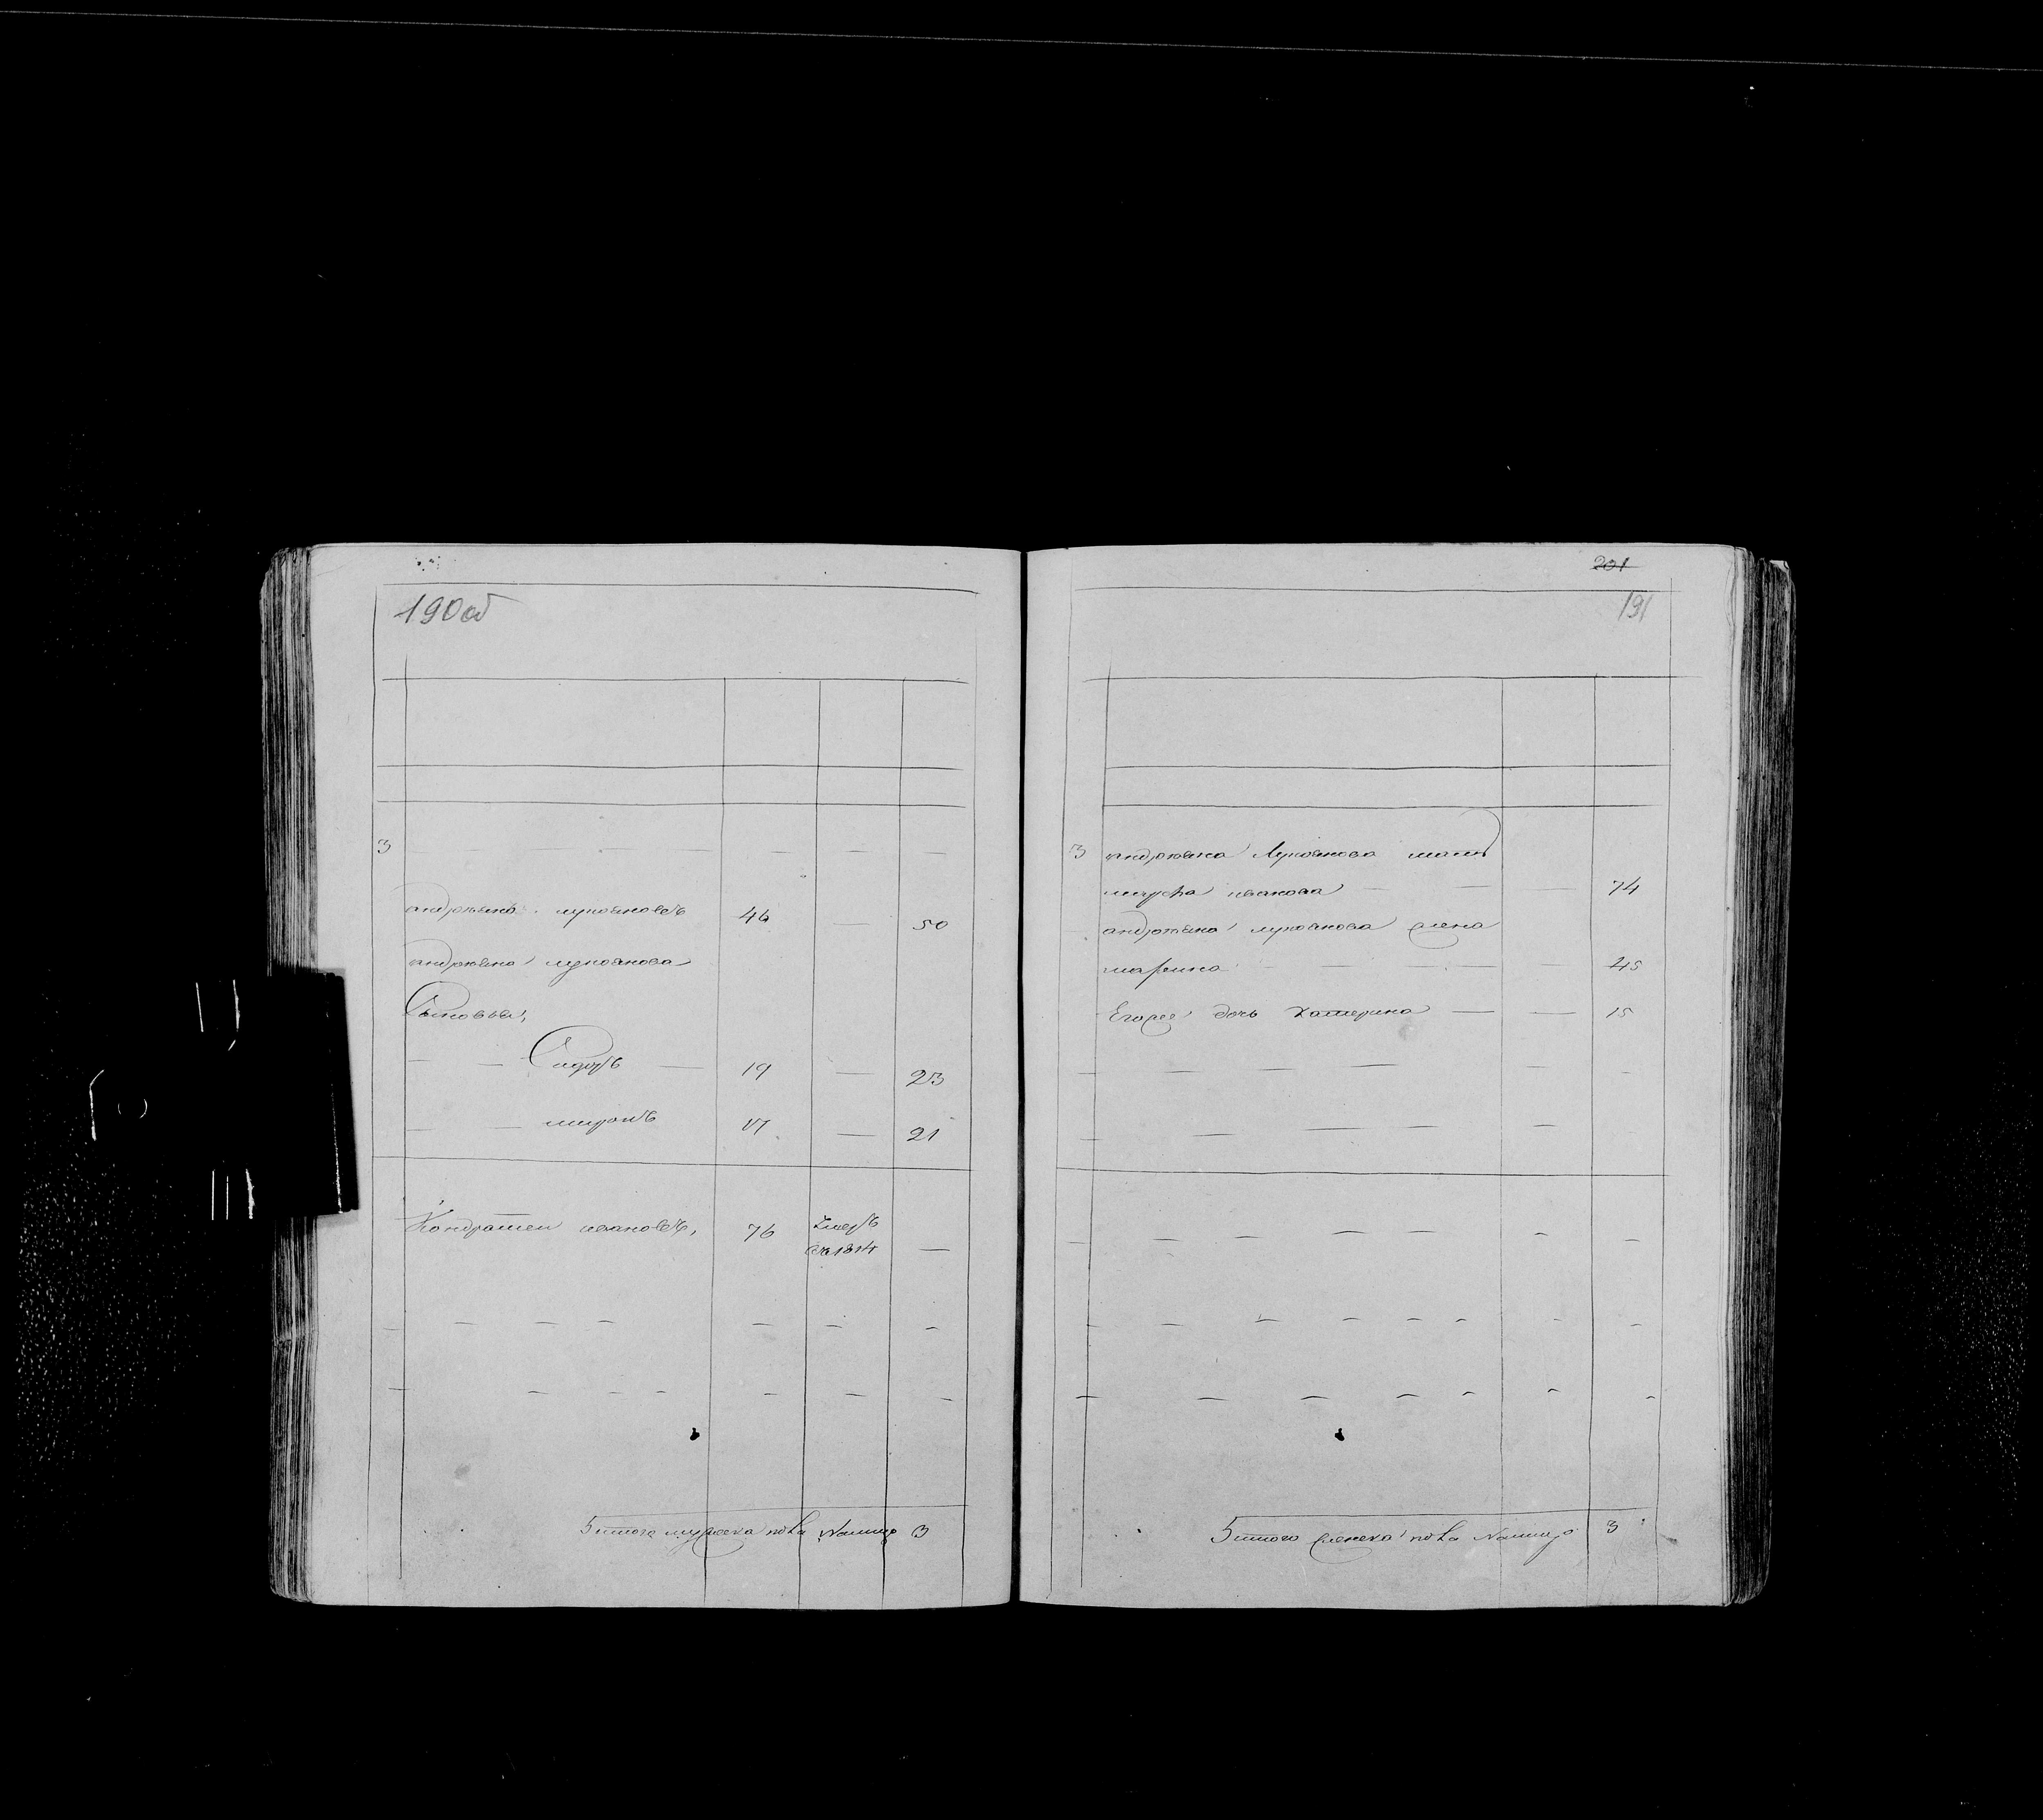 190об
3
андреянъ лукояновъ 46 — 50
андреяна лукоянова
Сыновья,
— — Сидоръ — 19 — 23
— — миронъ 17 — 21
Кондратей ивановъ, 76 Умеръ
въ 1814 —
итого мужеска пола Налицо 3
201
191
3 андреяна Лукоянова мать
ивановна — — — 74
андреяна лукоянова жена
марина — — — — 45
Егорее дочь Катерина — — 15
итого женска пола Налицо 3